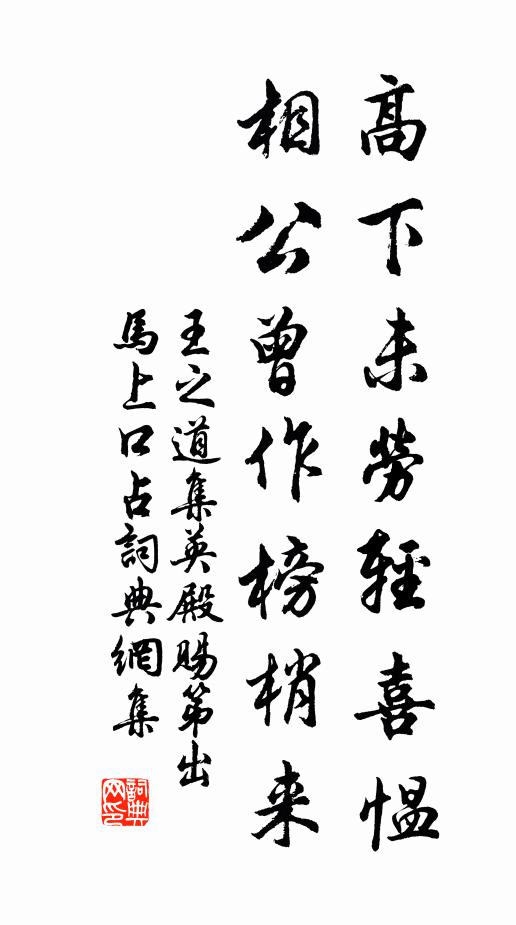 高下未勞輕喜愠
相公曾作榜梢来
王之道集英殿賜第出
馬上口占詞典網集
詞典网印